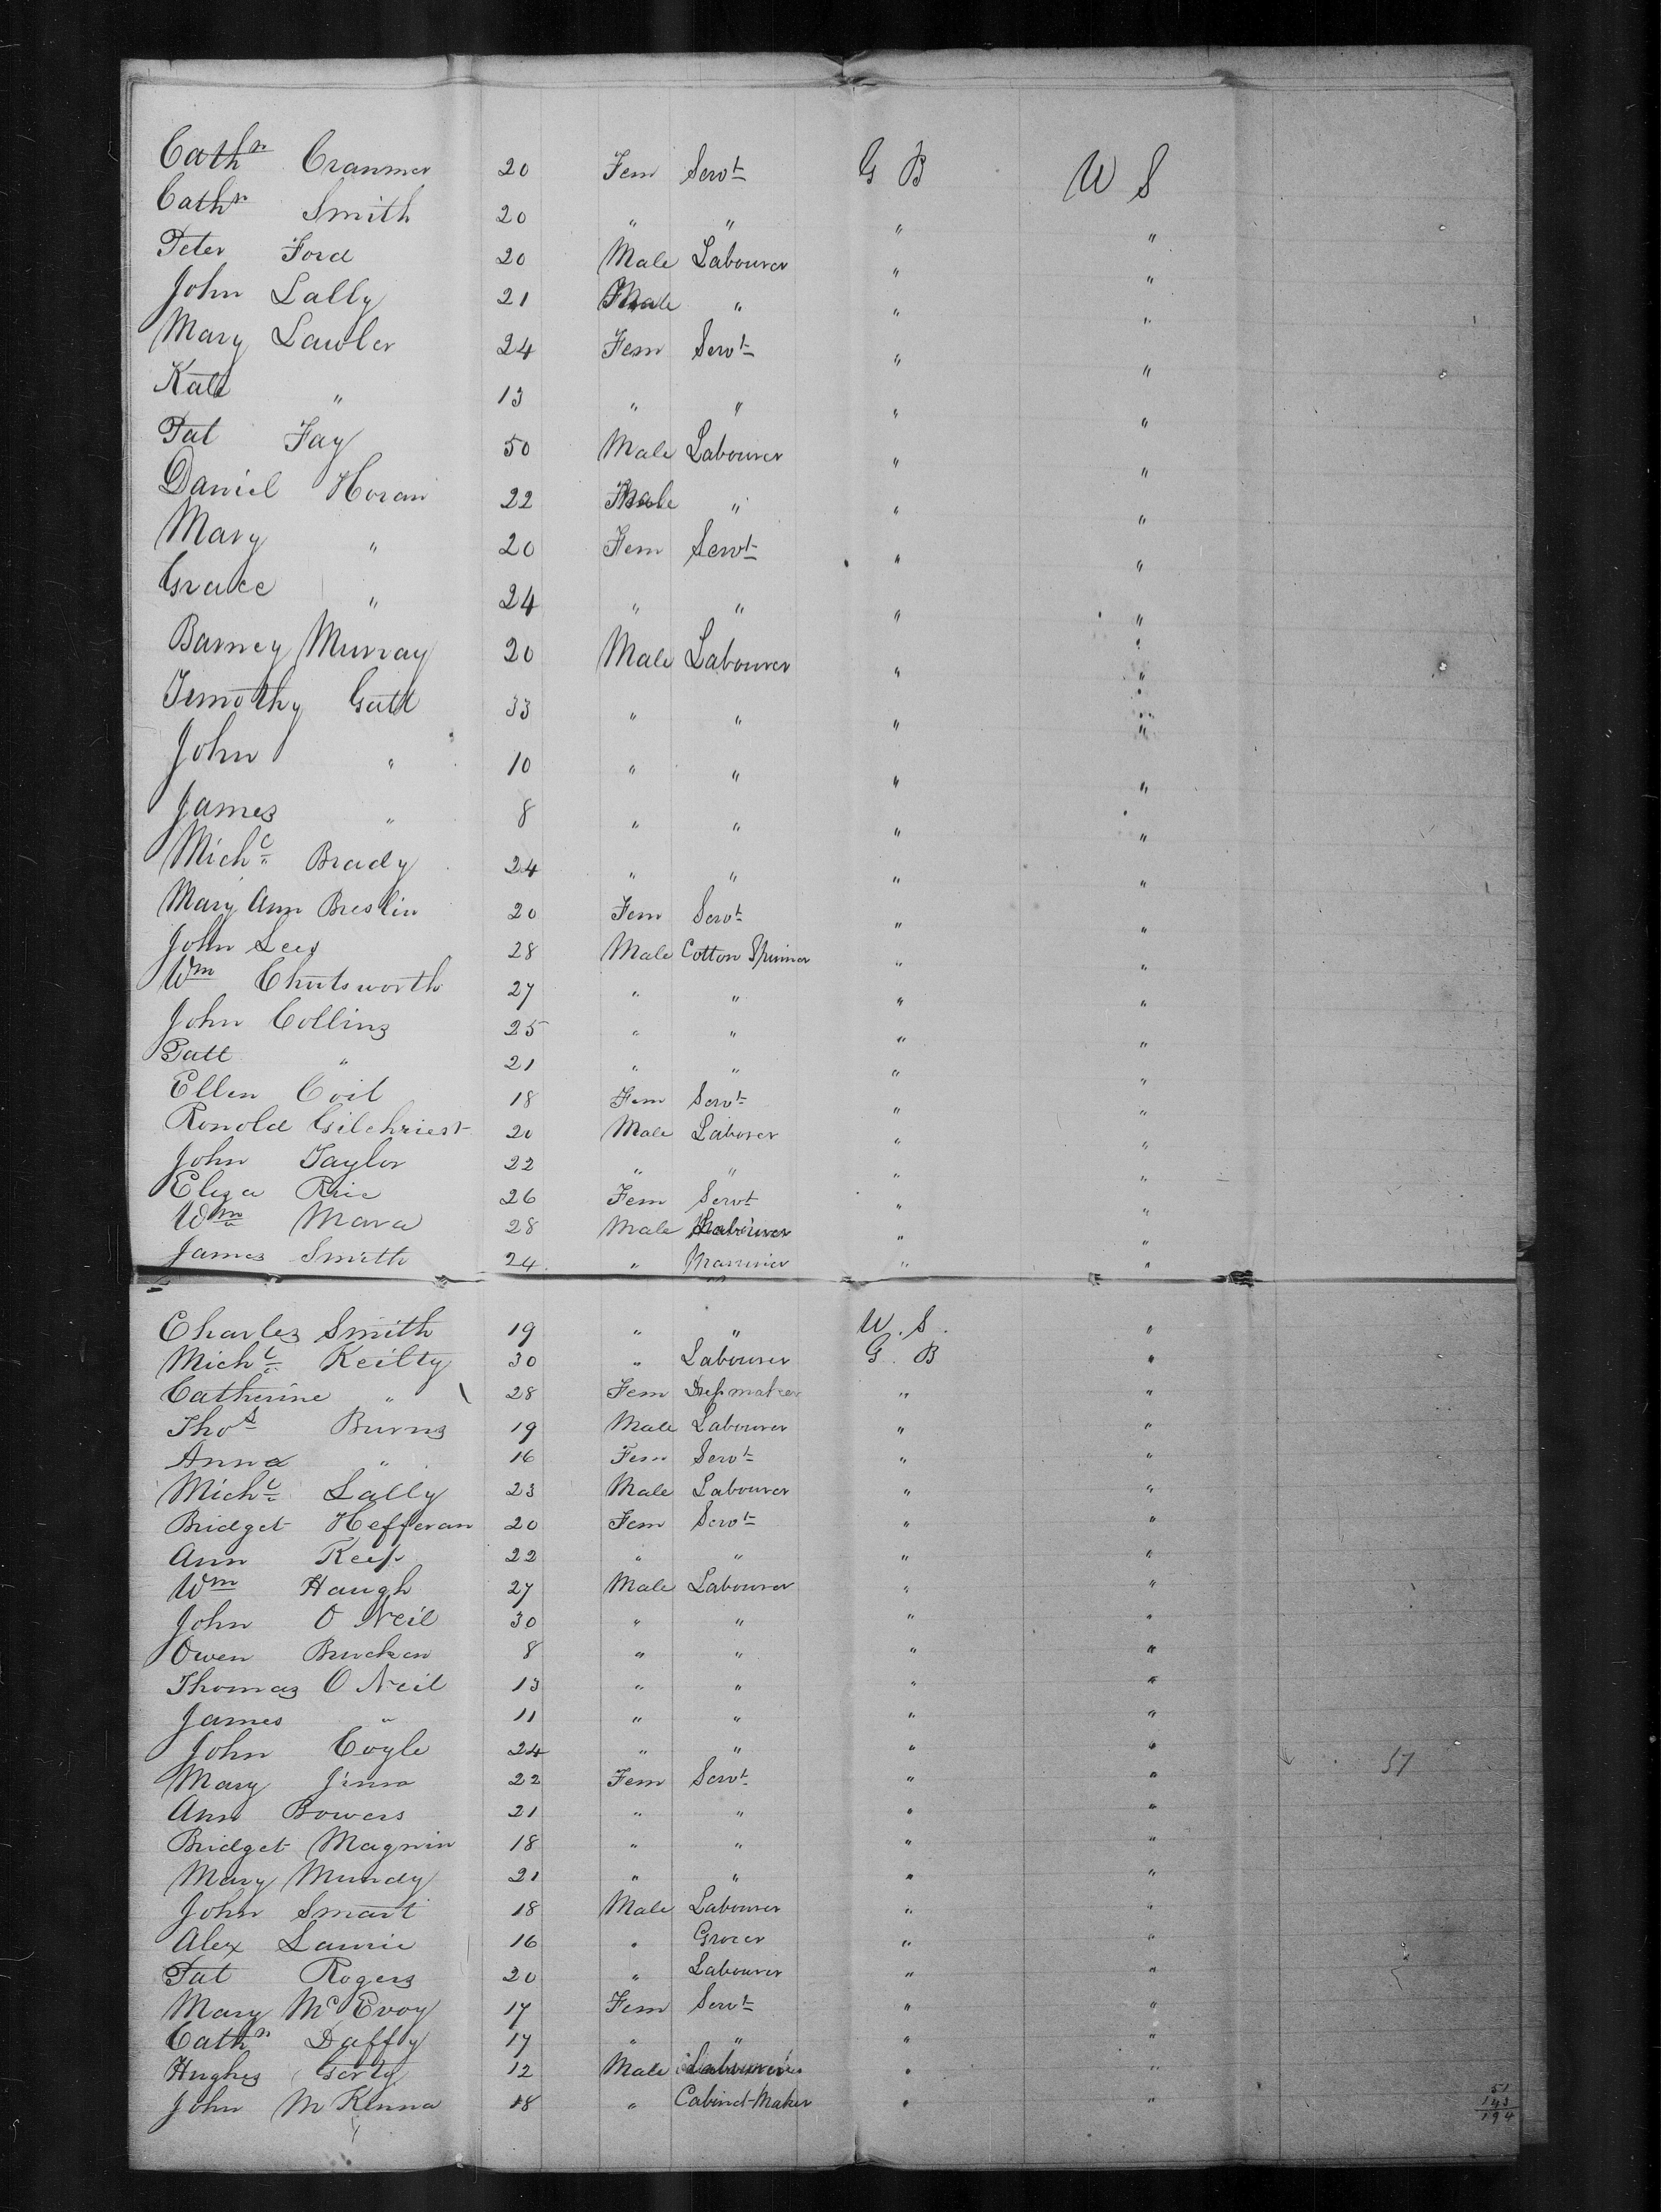 Cathn Cranmer 20 Fem Servt G B W S
Cathn Smith 20 " " " "
Peter Ford 20 Male Labourer " "
John Lally 21 Male " " "
Mary Lawler 24 Fem Servt " "
Kate " 13 " " " "
Pat Fay 50 Male Labourer " "
Daniel Horan 22 Male " " "
Mary " 20 Fem Servt " "
Grace " 24 " " " "
Barney Murray 20 Male Labourer " "
Timothy Gatt 33 " " " "
John " 10 " " " "
James " 8 " " " "
Michl Brady 24 " " " "
Mary Ann Breslin 20 Fem Servt " "
John Lees 28 Male Cotton Spinner " "
Wm Chutsworth 27 " " " "
John Collins 25 " " " "
Patt " 21 " " " "
Ellen Coil 18 Fem Servt " "
Ronold Gilchriest 20 Male Laborer " "
John Taylor 22 " " " "
Eliza Rice 26 Fem Servt " "
Wm Mara 28 Male Labourer " "
James Smith 24 " Marinier " "
Charles Smith 19 " " W. S. "
Michl Keilty 30 " Labourer G. B "
Catherine " 28 Fem Dressmaker " "
Thos Burns 19 Male Labourer " "
Anna " 16 Fem Servt " "
Michl Lally 23 Male Labourer " "
Bridget Hefferan 20 Fem Servt " "
Ann Keess 22 " " " "
Wm Haugh 27 Male Labourer " "
John O Neil 30 " " " "
Owen 8 " " " "
Thomas O Neil 13 " " " "
James " 11 " " " "
John Coyle 24 " " " "
Mary 22 Fem Servt " " 51
Ann Bowers 21 " " " "
Bridget Magnin 18 " " " "
Mary Mundy 21 " " " "
John Smart 18 Male Labourer " "
Alex Lawrie 16 " Grocer " "
Pat Rogers 20 " Labourer " "
Mary McEvoy 17 Fem Servt " "
Cathn Daffy 17 " " " "
Hughes Gerty 12 Male Labourer " "
John M Kenna 18 " Cabinet-Maker " "
51
143
194